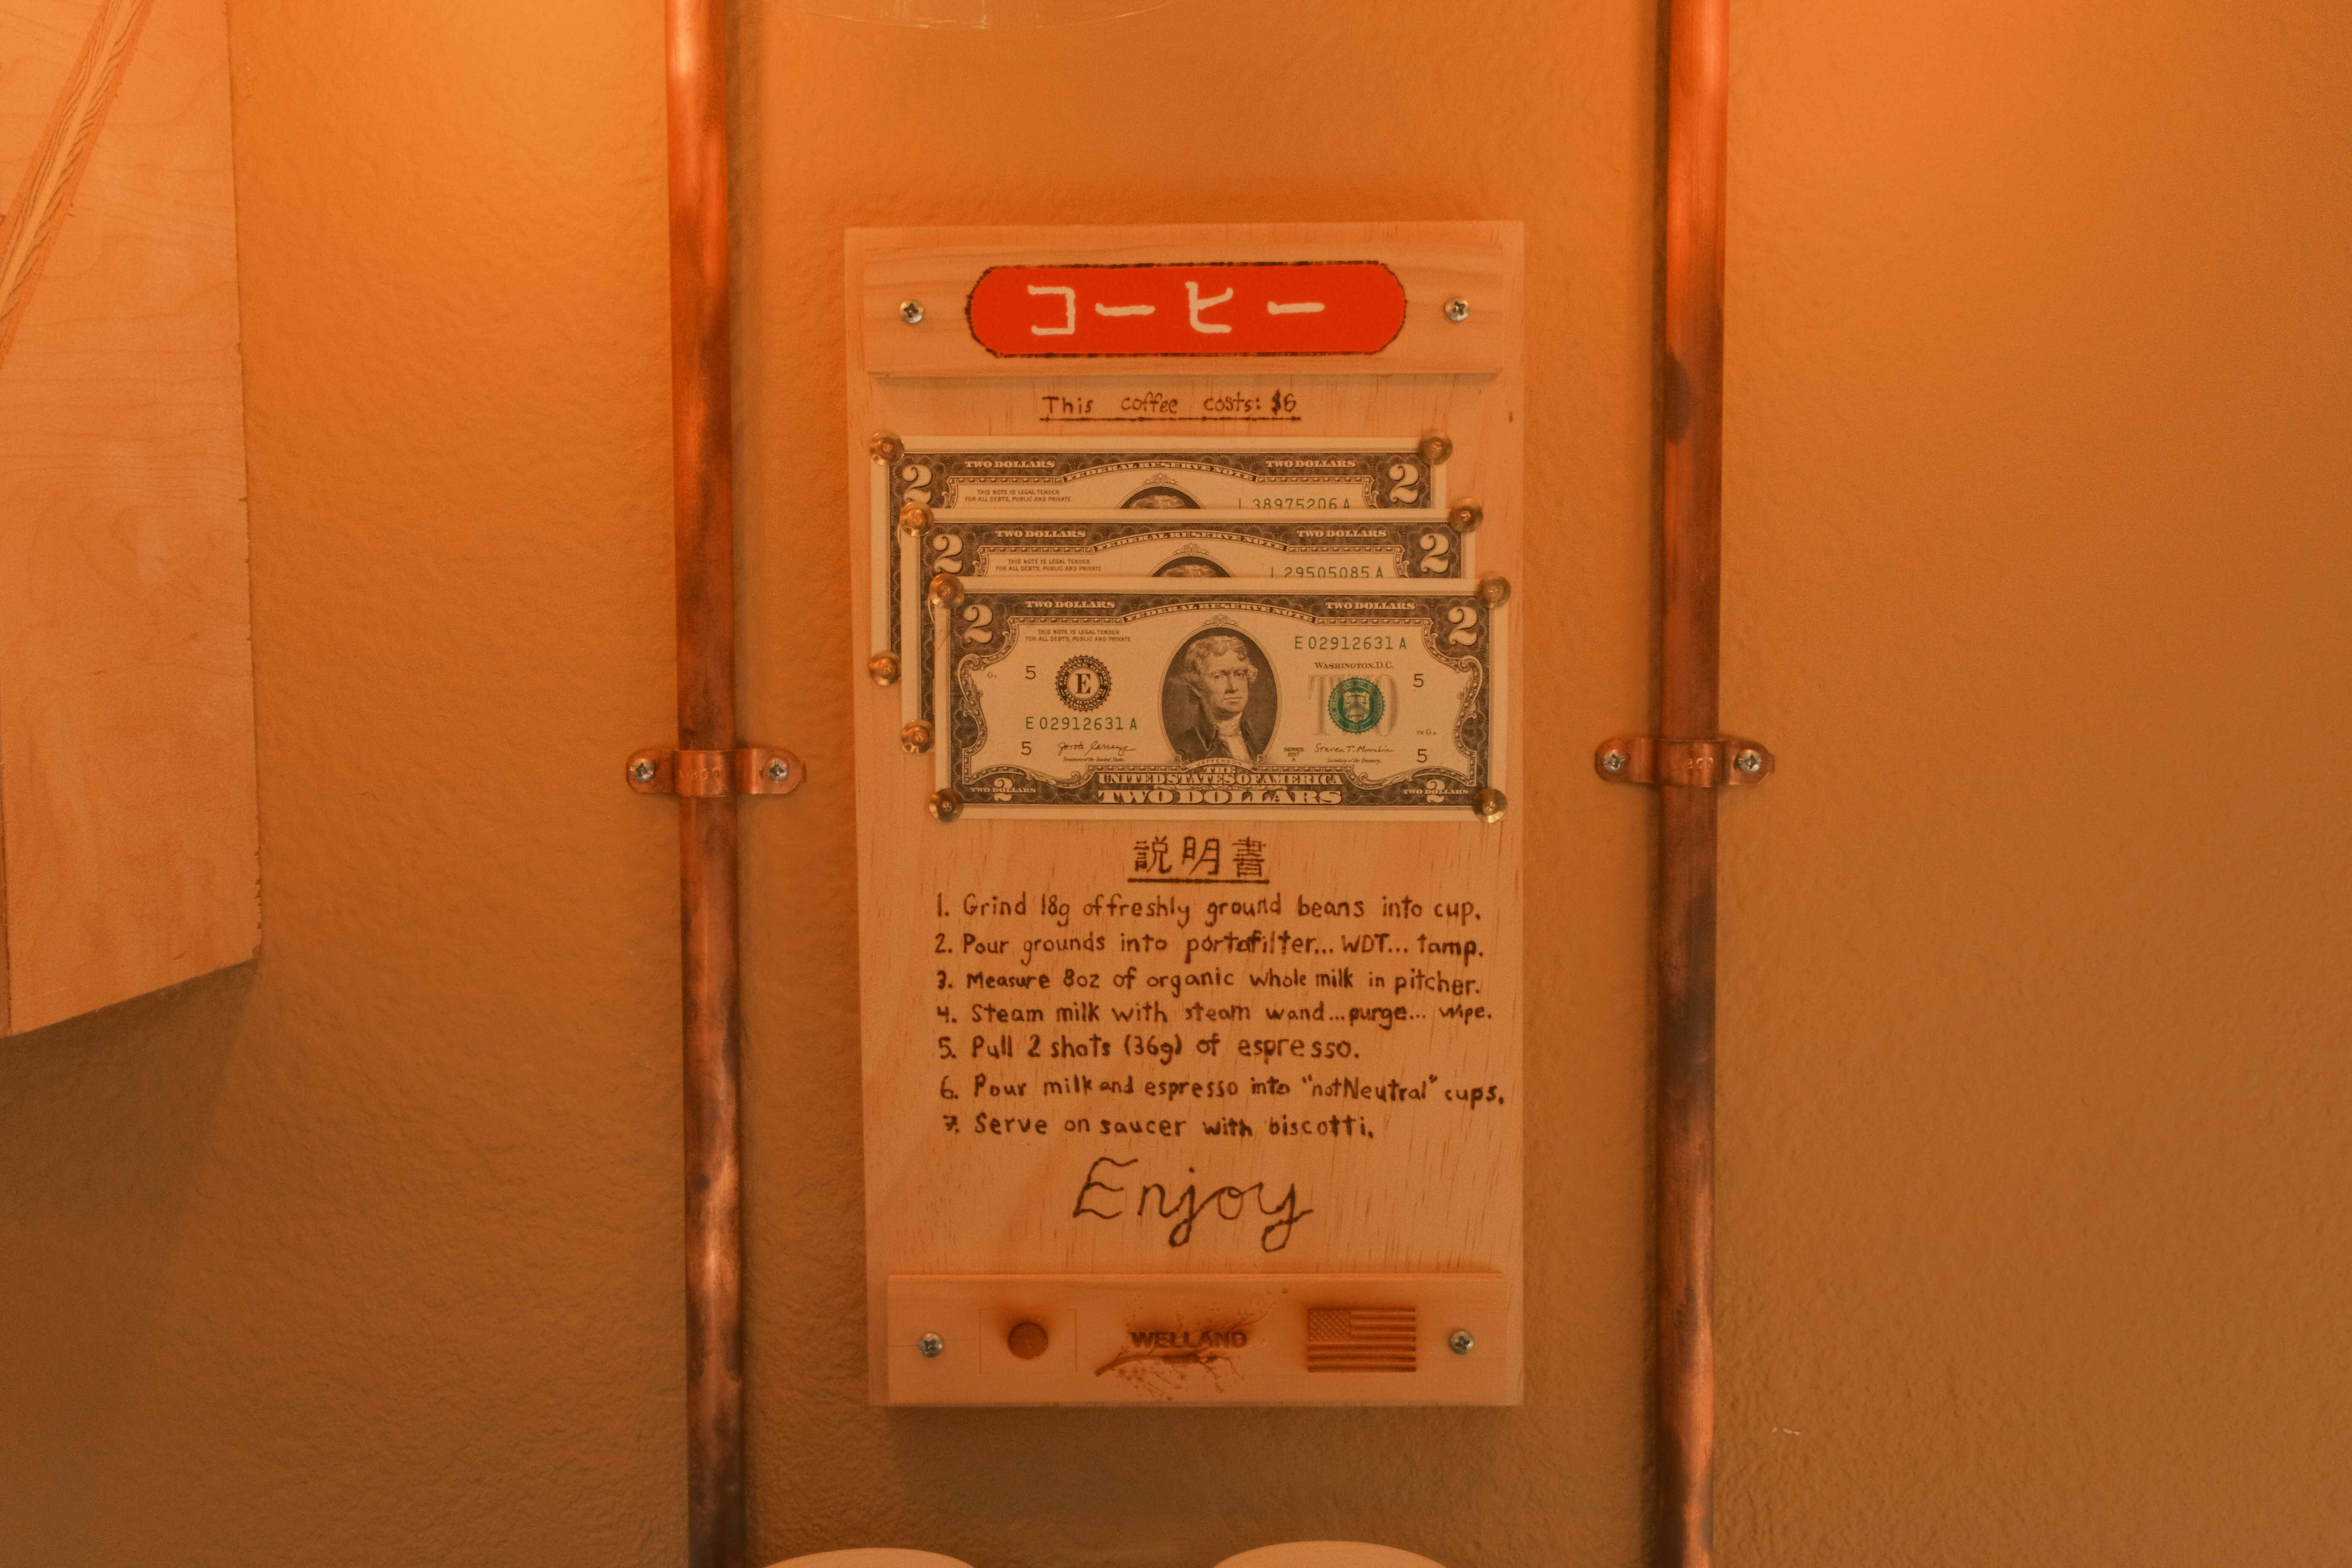 コーヒー
This coffee costs: $6
TWO DOLLARS FEDERAL RESERVE NOTE TWO DOLLARS
2 2
THIS NOTE IS LEGAL TENDER
FOR ALL DEBTS, PUBLIC AND PRIVATE
L 38975206 A
TWO DOLLARS FEDERAL RESERVE NOTE TWO DOLLARS
2 2
THIS NOTE IS LEGAL TENDER
FOR ALL DEBTS, PUBLIC AND PRIVATE
L 29505085 A
TWO DOLLARS FEDERAL RESERVE NOTE TWO DOLLARS
2 2
THIS NOTE IS LEGAL TENDER
FOR ALL DEBTS, PUBLIC AND PRIVATE
E 02912631 A
WASHINGTON, D.C.
5 E TWO 5
E 02912631 A
5 5
THE
UNITED STATES OF AMERICA
TWO DOLLARS 2 TWO DOLLARS 2 TWO DOLLARS
説明書
1. Grind 18g of freshly ground beans into cup.
2. Pour grounds into portafilter... WDT... tamp.
3. Measure 8oz of organic whole milk in pitcher.
4. Steam milk with steam wand... purge... wipe.
5. Pull 2 shots (36g) of espresso.
6. Pour milk and espresso into "notNeutral" cups.
7. Serve on saucer with biscotti.
Enjoy
WELLAND